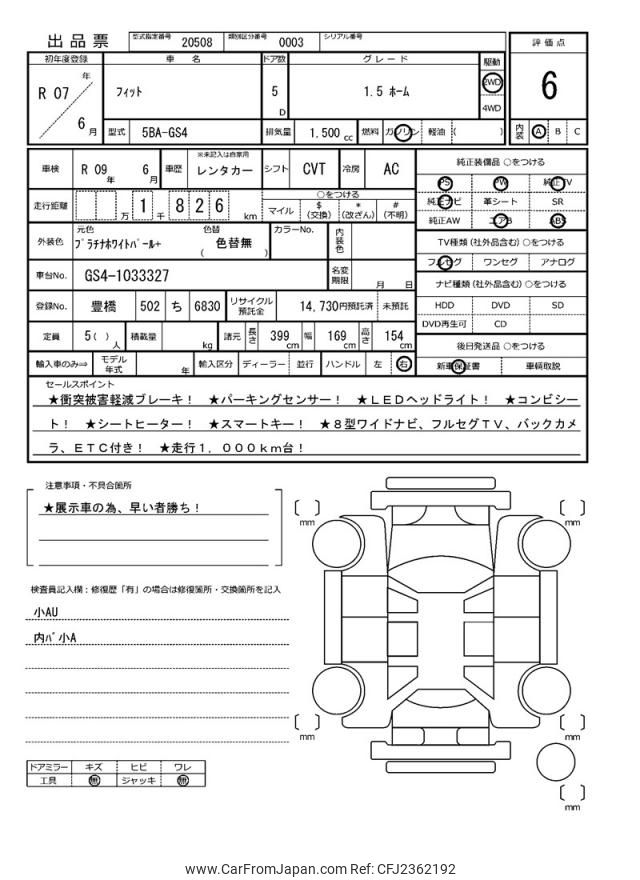 出品票 型式指定番号 20508 類別区分番号 0003 シリアル番号
評価点
6
内装 A B C
初年度登録 車名 ドア数 グレード 駆動
R 07 年 6 月
フィット 5 D 1.5 ホーム 2WD 4WD
型式 5BA-GS4 排気量 1.500 cc 燃料 ガソリン 軽油 ( )
車検 R 09 年 6 月 車歴 ※未記入は自家用 レンタカー シフト CVT 冷房 AC
走行距離 万 1 千 8 2 6 km
○をつける
マイル $ (交換) * (改ざん) # (不明)
外装色 元色 プラチナホワイトパール+ 色替 ( 色替無 ) カラーNo. 内装色
車台No. GS4-1033327 名変期限 月 日
登録No. 豊橋 502 ち 6830 リサイクル預託金 14,730円預託済 未預託
定員 5( ) 人 積載量 kg 諸元 長さ 399 cm 幅 169 cm 高さ 154 cm
輸入車のみ⇒ モデル年式 年 輸入区分 ディーラー 並行 ハンドル 左 右
純正装備品 ○をつける
PS PW 純正TV
純正ナビ 革シート SR
純正AW エアB ABS
TV種類 (社外品含む) ○をつける
フルセグ ワンセグ アナログ
ナビ種類 (社外品含む) ○をつける
HDD DVD SD
DVD再生可 CD
後日発送品 ○をつける
新車保証書 車輌取説
セールスポイント
★衝突被害軽減ブレーキ! ★パーキングセンサー! ★LEDヘッドライト! ★コンビシー
ト! ★シートヒーター! ★スマートキー! ★8型ワイドナビ、フルセグTV、バックカメ
ラ、ETC付き! ★走行1,000km台!
注意事項・不具合箇所
★展示車の為、早い者勝ち!
検査員記入欄:修復歴「有」の場合は修復箇所・交換箇所を記入
小AU
内バ小A
ドアミラー キズ ヒビ ワレ
工具 無 ジャッキ 無
[ ] mm
[ ] mm
[ ] mm
[ ] mm
[ ] mm
www.CarFromJapan.com Ref: CFJ2362192